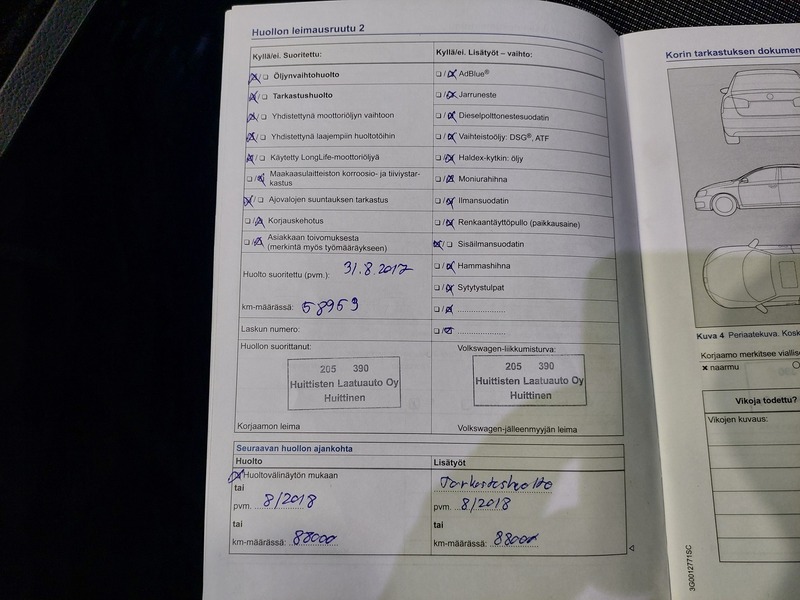 Huollon leimausruutu 2
Kyllä/ei. Suoritettu:
☒/☐ Öljynvaihtohuolto
☒/☐ Tarkastushuolto
☒/☐ Yhdistettynä moottoriöljyn vaihtoon
☒/☐ Yhdistettynä laajempiin huoltotöihin
☒/☐ Käytetty LongLife-moottoriöljyä
☐/☒ Maakaasulaitteiston korroosio- ja tiiviystar-
kastus
☒/☐ Ajovalojen suuntauksen tarkastus
☐/☒ Korjauskehotus
☐/☒ Asiakkaan toivomuksesta
(merkintä myös työmääräykseen)
Huolto suoritettu (pvm.): 31.8.2017
km-määrässä: 58953
Laskun numero:
Huollon suorittanut:
205 390
Huittisten Laatuauto Oy
Huittinen
Korjaamon leima
Kyllä/ei. Lisätyöt – vaihto:
☐/☒ AdBlue®
☐/☒ Jarruneste
☐/☒ Dieselpolttonestesuodatin
☐/☒ Vaihteistoöljy: DSG®, ATF
☐/☒ Haldex-kytkin: öljy
☐/☒ Moniurahihna
☐/☒ Ilmansuodatin
☐/☒ Renkaantäyttöpullo (paikkausaine)
☒/☐ Sisäilmansuodatin
☐/☒ Hammashihna
☐/☒ Sytytystulpat
☐/☒ ....................
☐/☒ ....................
Volkswagen-liikkumisturva:
205 390
Huittisten Laatuauto Oy
Huittinen
Volkswagen-jälleenmyyjän leima
Seuraavan huollon ajankohta
Huolto
☒ Huoltovälinäytön mukaan
tai
pvm. 8/2018
tai
km-määrässä: 88000
Lisätyöt
Tarkastushuolto
pvm. 8/2018
tai
km-määrässä: 88000
Korin tarkastuksen dokumen
Kuva 4 Periaatekuva. Kosk
Korjaamo merkitsee viallise
× naarmu
Vikoja todettu?
Vikojen kuvaus:
3G0012771SC